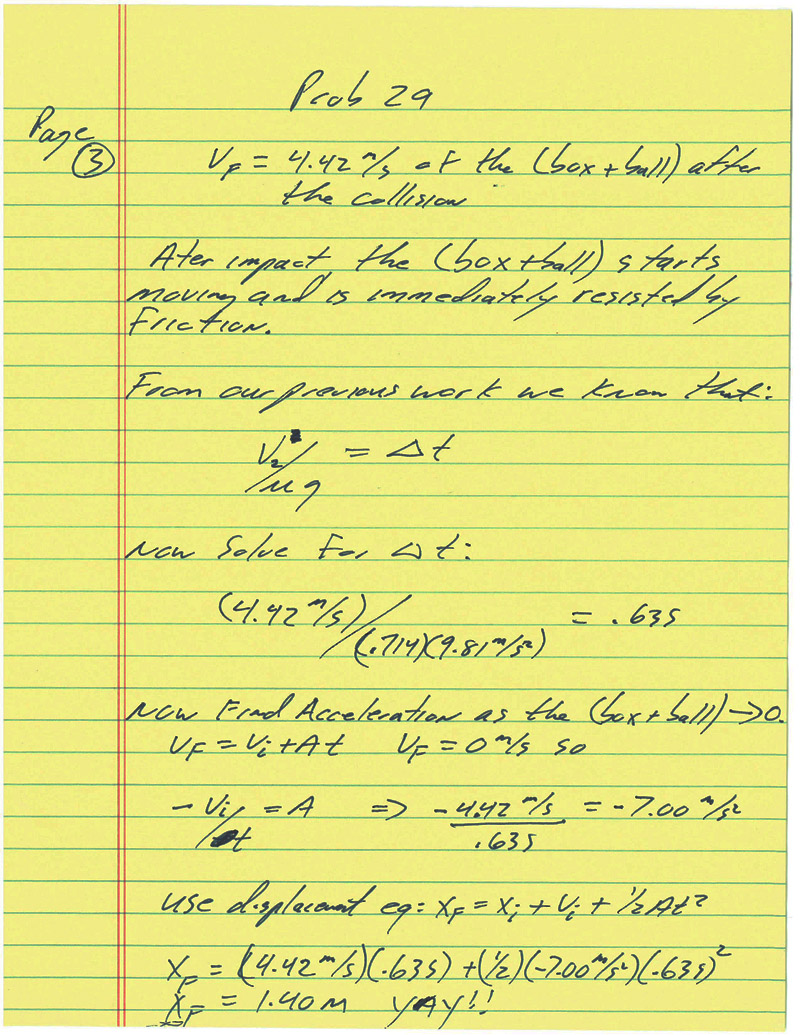 Prob 29
Page
3
V_F = 4.42 m/s of the (box + ball) after
the collision
Ater impact the (box + ball) starts
moving and is immediately resisted by
Friction.
From our previous work we know that:
V₂/μg = Δt
Now Solve For Δt:
(4.42 m/s)/(.714)(9.81 m/s²) = .63s
Now Find Acceleration as the (box + ball) → 0.
V_F = V_i + At V_F = 0 m/s so
- V_i/t = A => - 4.42 m/s / .63s = -7.00 m/s²
Use displacement eq: X_F = X_i + V_i + ½ At²
X_F = (4.42 m/s)(.63s) + (½)(-7.00 m/s²)(.63s)²
X_F = 1.40 M YAY!!